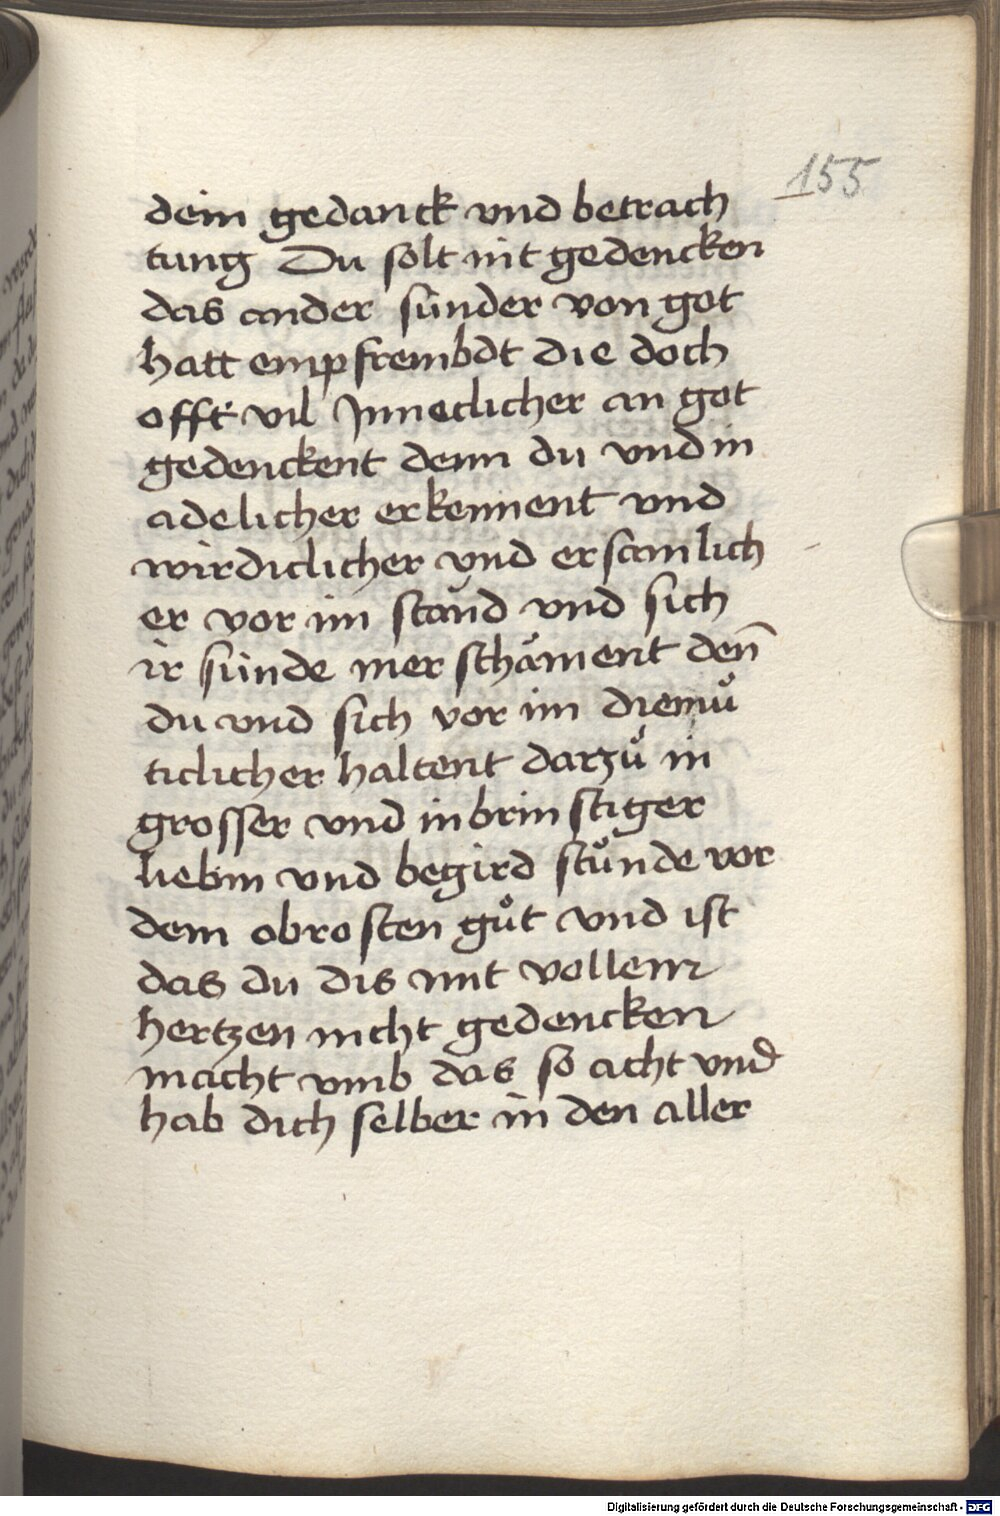 155
dein gedanck vnd betrach
tung Du solt nit gedencken
das ander sünder von got
hatt empfrembdt die doch
offt vil Jnneclicher an got
gedenckent denn du vnd in
adelicher erkennent vnd
wirdiclicher vnd ersamlich
er vor im stand vnd sich
ir sünde mer schäment den̄
du vnd sich vor im diemuͦ
ticlicher haltent darzuͦ in
grosser vnd inbrinstiger
liebin vnd begird stuͦnde vor
dem obrosten guͦt vnd ist
das du dis mit vollem
hertzen nicht gedencken
macht vmb das so acht vnd
hab dich selber in den aller
Digitalisierung gefördert durch die Deutsche Forschungsgemeinschaft - DFG